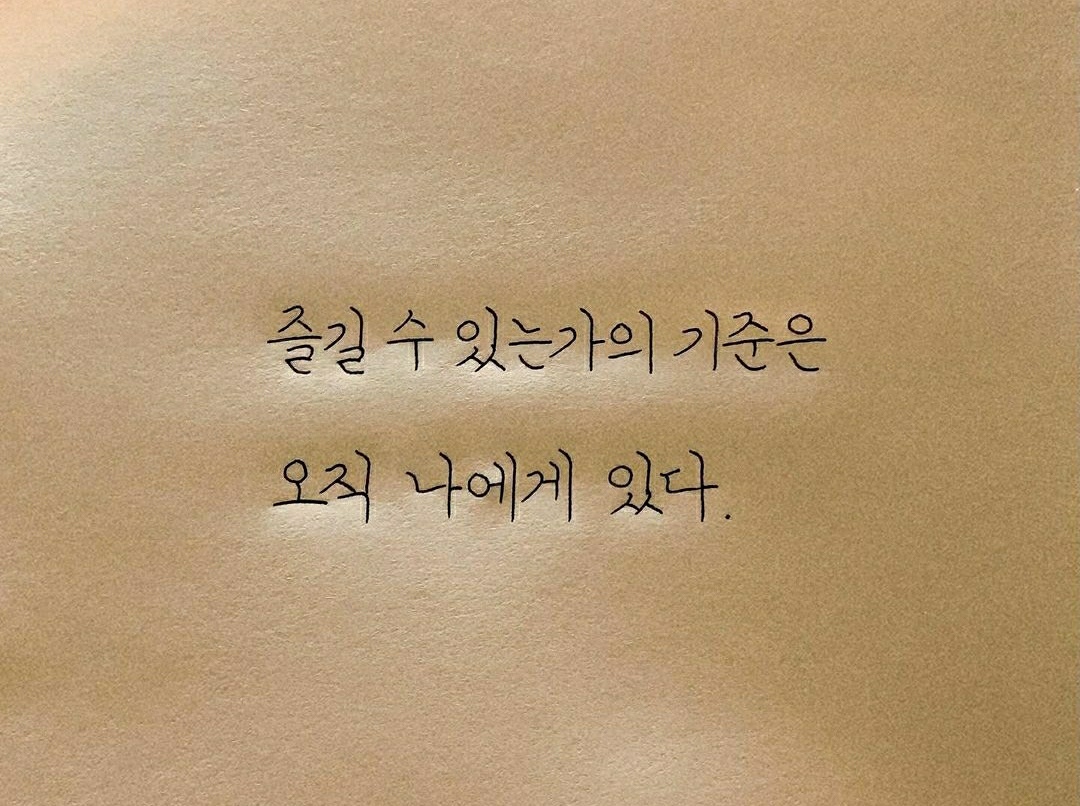 즐길 수 있는가의 기준은
오직 나에게 있다.